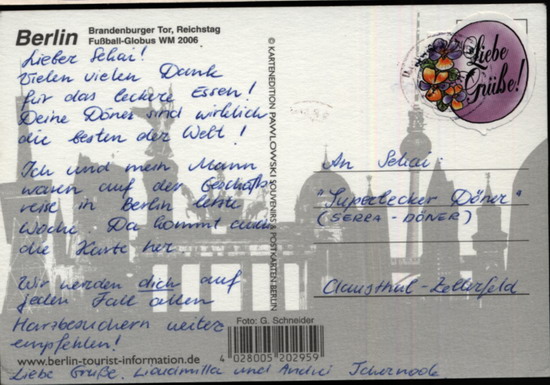 Berlin
Brandenburger Tor, Reichstag
Fußball-Globus WM 2006
Lieber Schai!
Vielen vielen Dank
für das leckere Essen!
Deine Döner sind wirklich
die besten der Welt!
Ich und mein Mann
waren auf der Geschäfts-
reise in Berlin letzte
Woche. Da kommt auch
die Karte her.
Wir werden dich auf
jeden Fall allen
Harzbesuchern weiter
empfehlen!
Liebe Grüße, Liudmilla und Andrei
© KARTENEDITION PAWLOWSKI SOUVENIRS & POSTKARTEN BERLIN
Liebe
Grüße!
An Schai
"Superlecker Döner"
(SERRA-DÖNER)
Clausthal-Zellerfeld
Foto: G. Schneider
4 028005 202959
www.berlin-tourist-information.de